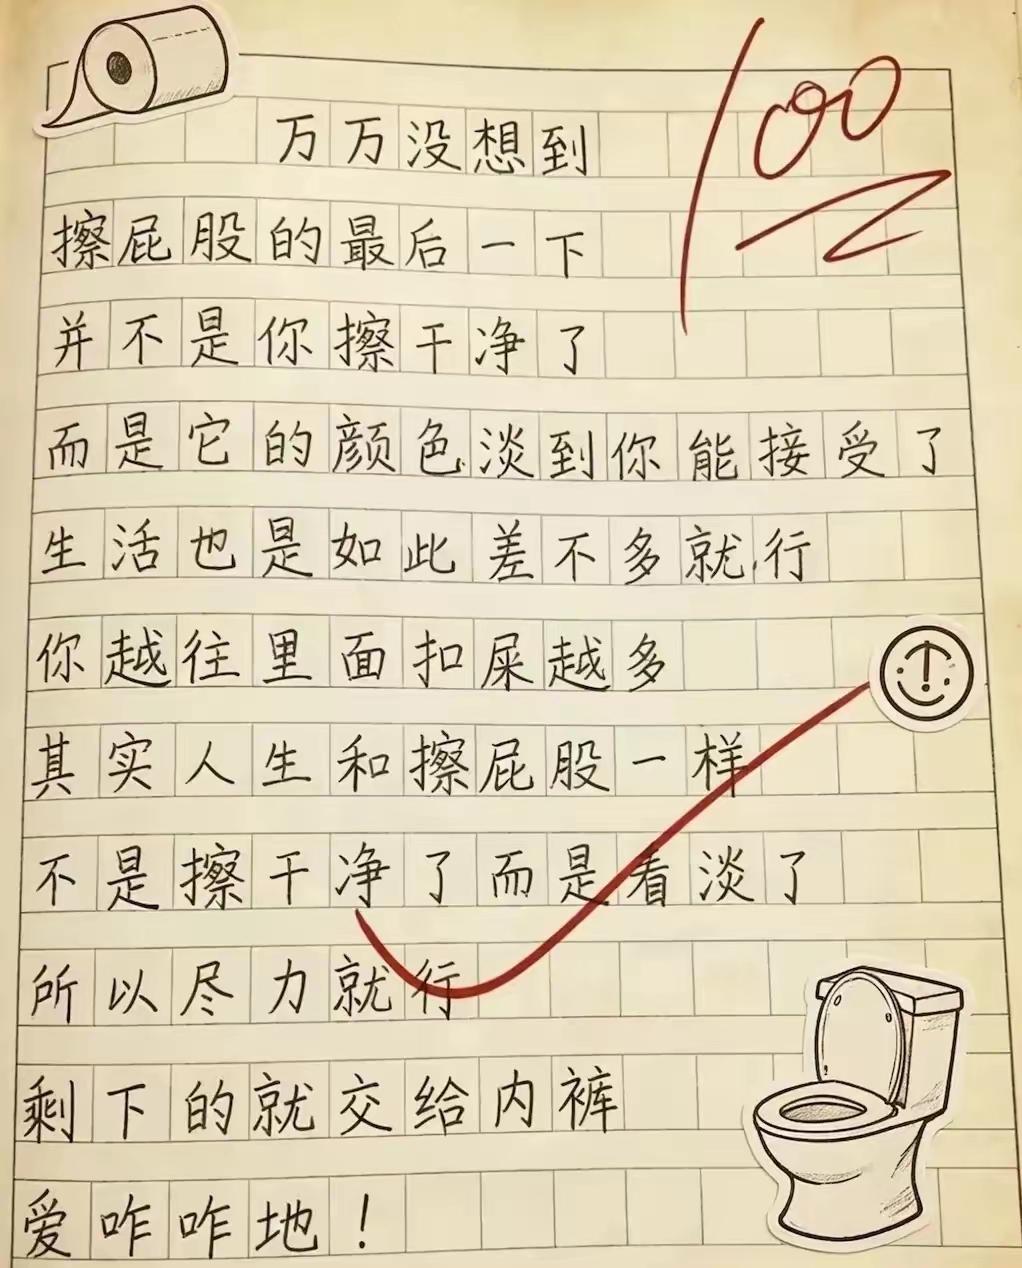 100
万万没想到
擦屁股的最后一下
并不是你擦干净了
而是它的颜色淡到你能接受了
生活也是如此差不多就行
你越往里面扣屎越多
其实人生和擦屁股一样
不是擦干净了而是看淡了
所以尽力就行
剩下的就交给内裤
爱咋咋地！